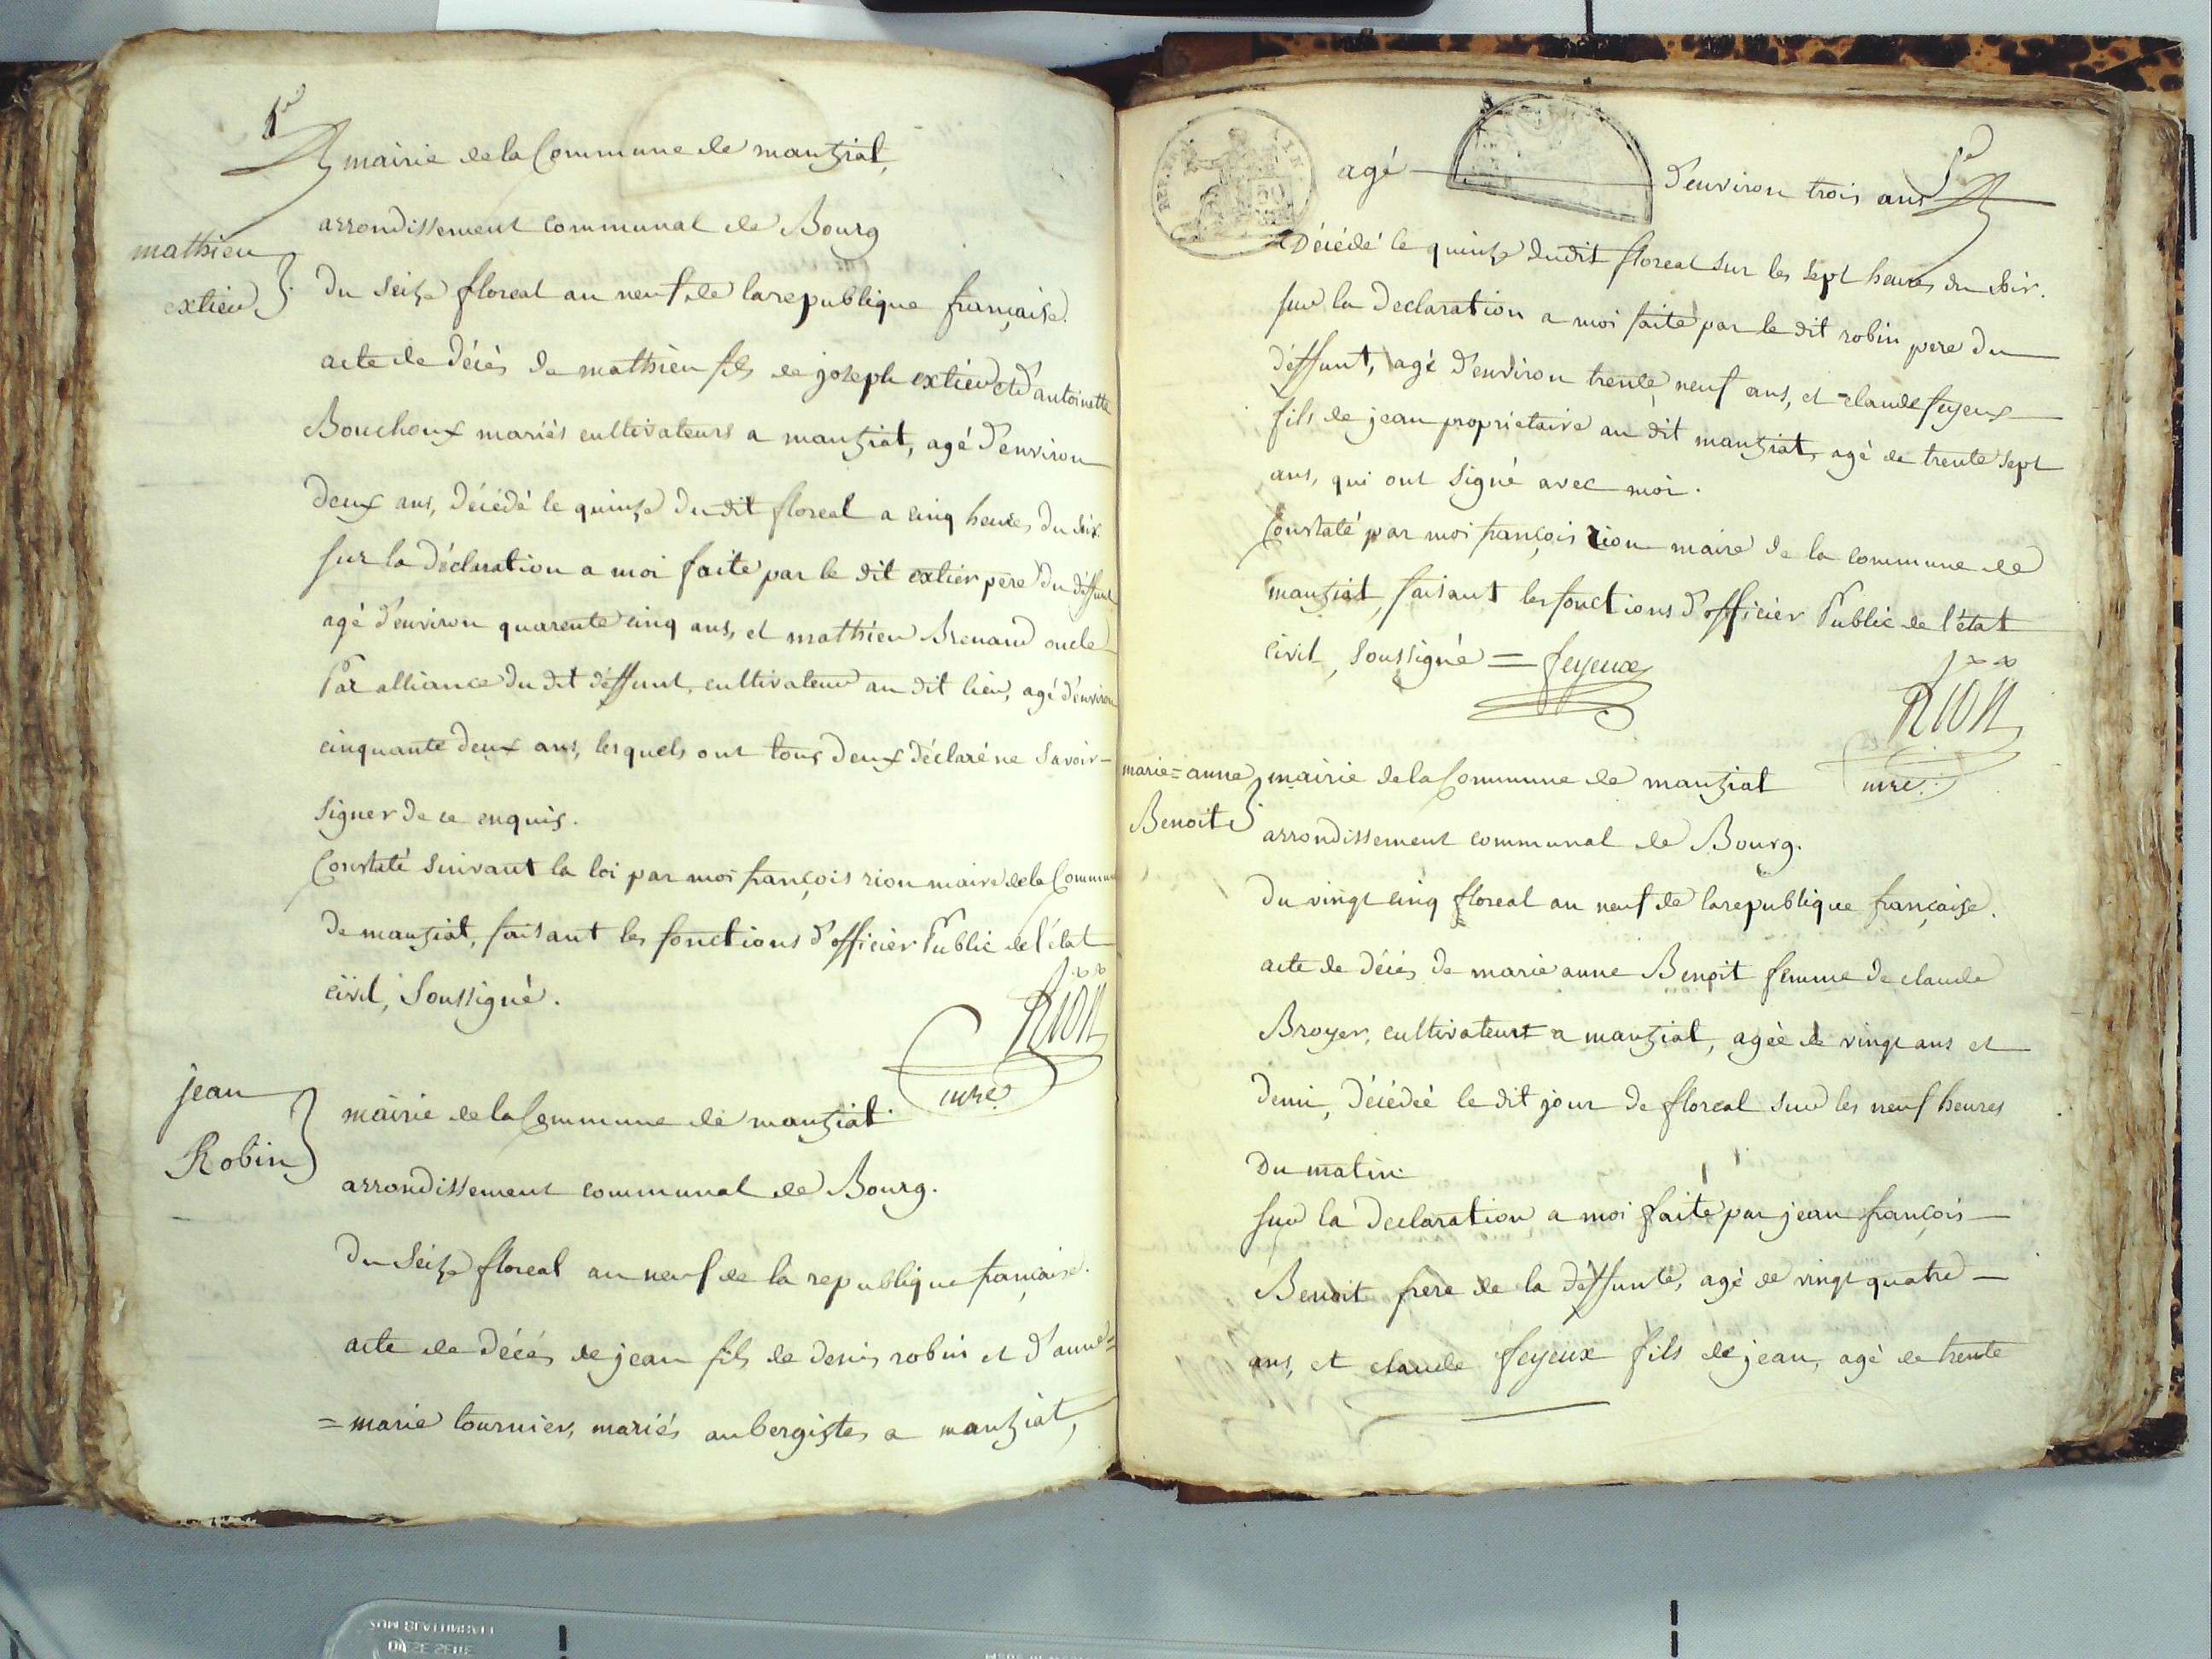 mairie de la Commune de manziat,
arrondissement communal de Bourg
mathieu
extier
du seize floreal an neuf de la republique française.
acte de décès de mathieu fils de joseph extier et d'antoinette
Bouchoux mariés cultivateurs a manziat, agé d'environ
deux ans, décédé le quinze du dit floreal a cinq heures du soir.
sur la déclaration a moi faite par le dit extier pere du déffunt
agé d'environ quarente cinq ans, et mathieu Brenaud oncle
Par alliance du dit déffunt, cultivateur au dit lieu, agé d'environ
cinquante deux ans, lesquels ont tous deux déclaré ne savoir
signer de ce enquis.
Constaté suivant la loi par moi françois rion maire de la Commune
de manziat, faisant les fonctions d'officier Public de l'état
civil, soussigné.
Rion
mre
jean
Robin
mairie de la Commune de manziat.
arrondissement communal de Bourg.
du seize floreal an neuf de la republique française.
acte de décés de jean fils de denis robin et d'anne=
=marie tournier, mariés aubergistes a manziat,
agé d'environ trois ans
REP. FRA.
50
décédé le quinze dudit floreal sur les sept heures du soir.
sur la declaration a moi faite par le dit robin pere du
déffunt, agé d'environ trente neuf ans, et claude feyeux
fils de jean proprietaire au dit manziat, agé de trente sept
ans, qui ont signé avec moi.
Constaté par moi françois rion maire de la commune de
manziat, faisant les fonctions d'officier Public de l'état
civil, soussigné = feyeux
Rion
mre
marie=anne
Benoit
mairie de la Commune de manziat
arrondissement communal de Bourg.
du vingt cinq floreal an neuf de la republique française.
acte de décés de marie anne Benoit femme de claude
Broyer, cultivateurs a manziat, agée de vingt ans et
demi, décédée le dit jour de floreal sur les neuf heures
du matin.
sur la declaration a moi faite par jean françois
Benoit frere de la deffunte, agé de vingt quatre
ans, et claude feyeux fils de jean, agé de trente